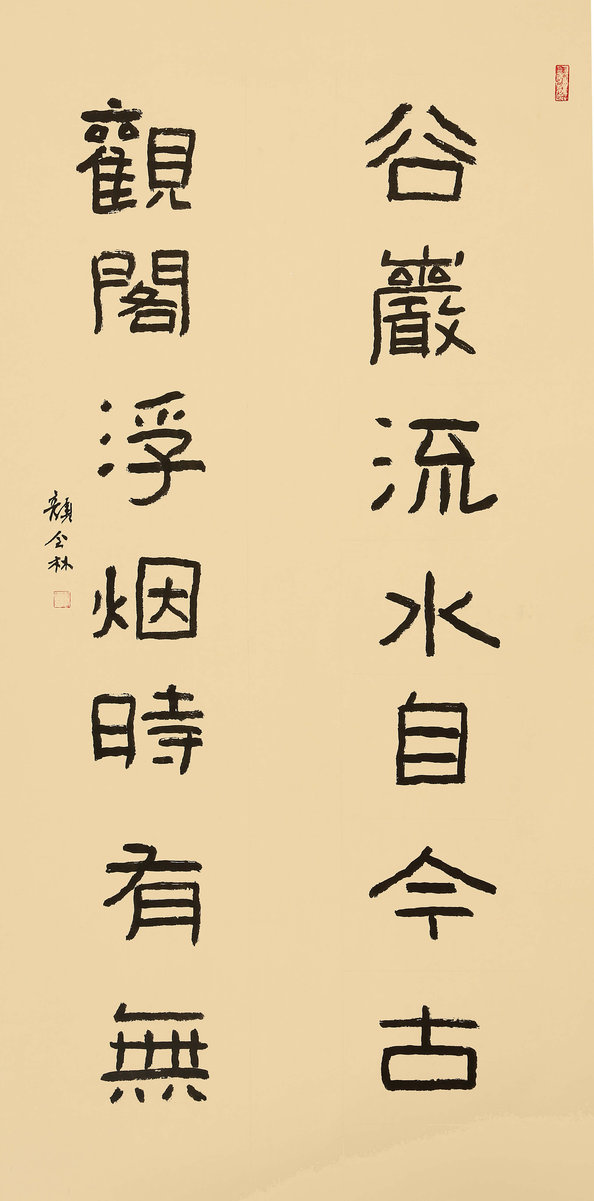 谷巖流水自今古
觀閣浮烟時有無
顏全林